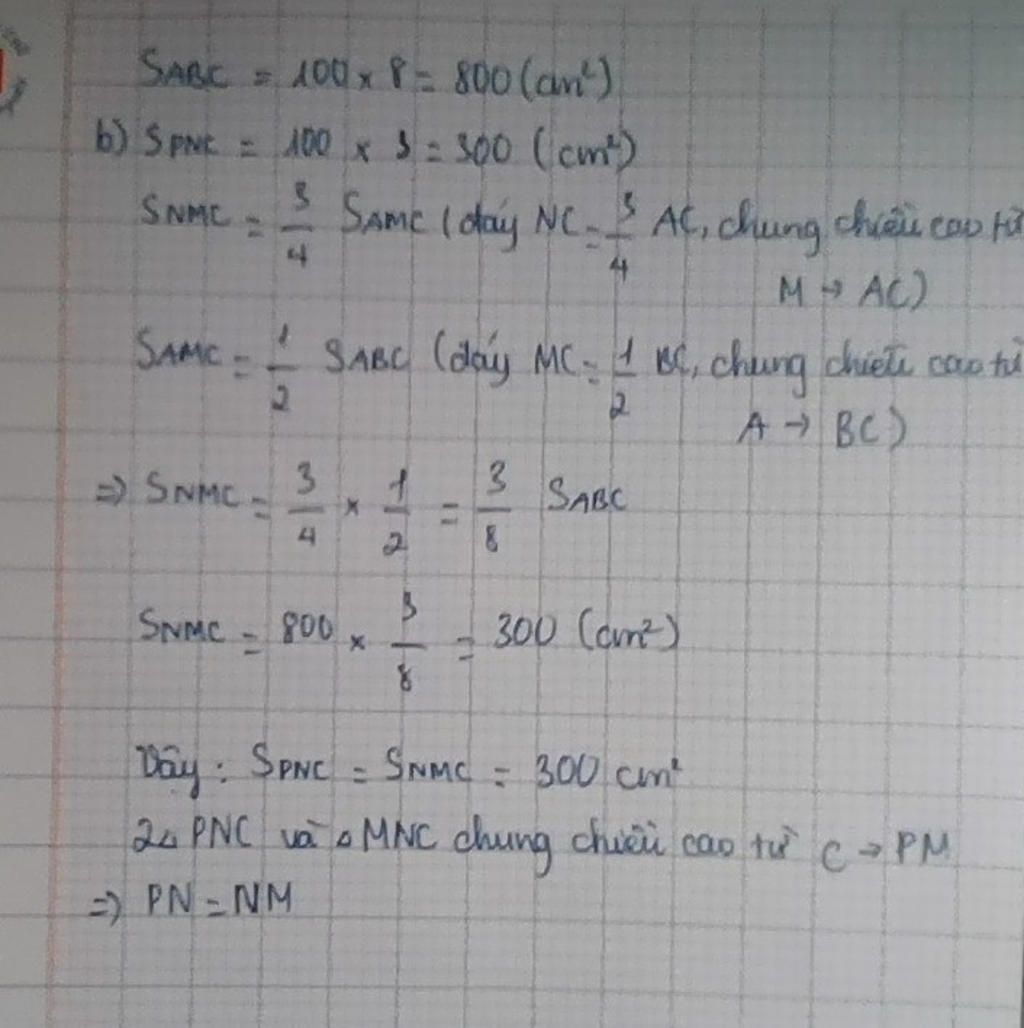 SABC = 100 × 8 = 800 (cm²)
b) SPNC = 100 × 3 = 300 (cm²)
SNMC = 3/4 SAMC (đáy NC = 3/4 AC, chung chiều cao từ
M → AC)
SAMC = 1/2 SABC (đáy MC = 1/2 BC, chung chiều cao từ
A → BC)
=> SNMC = 3/4 × 1/2 = 3/8 SABC
SNMC = 800 × 3/8 = 300 (cm²)
Vậy : SPNC = SNMC = 300 cm²
2△ PNC và △ MNC chung chiều cao từ C → PM
=> PN = NM